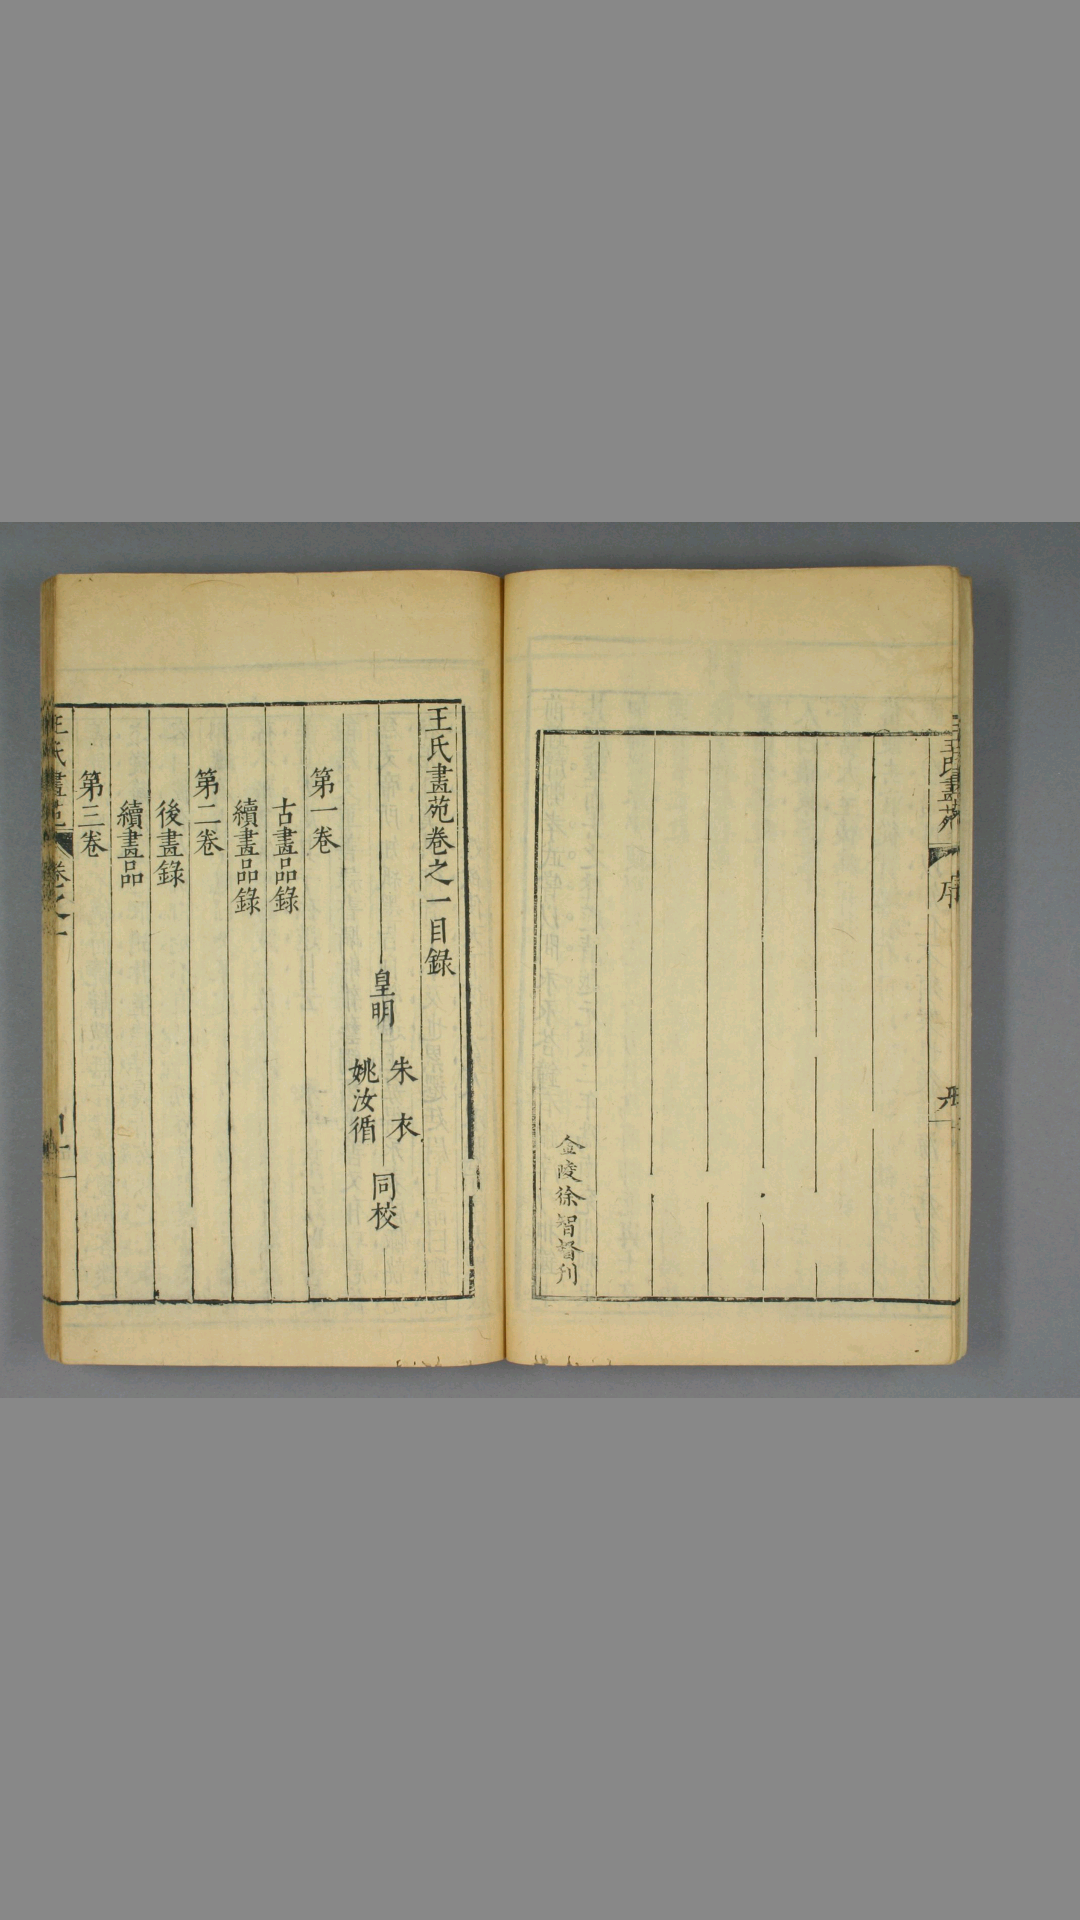 王氏畫苑
序
金陵徐智督刊
王氏畫苑卷之一目錄
皇明
朱衣
姚汝循
同校
第一卷
古畫品錄
續畫品錄
第二卷
後畫錄
續畫品
第三卷
王氏畫苑
卷之一